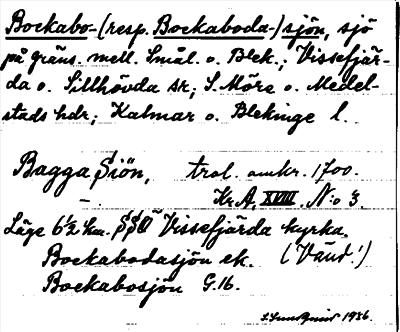 Bockabo- (resp. Bockaboda-) sjön, sjö
på gräns. mell. Smål. o. Blek.; Vissefjär-
da o. Sillhövda sr; S. Möre o. Medel-
stads hdr; Kalmar o. Blekinge l.
Bagga Siön, trol. omkr. 1700.
Kr. A. XVIII. N:o 3.
Läge 6½ km. SSO Vissefjärda kyrka.
Bockabodasjön ek. (Vänd!)
Bockabosjön G. 16.
1936.